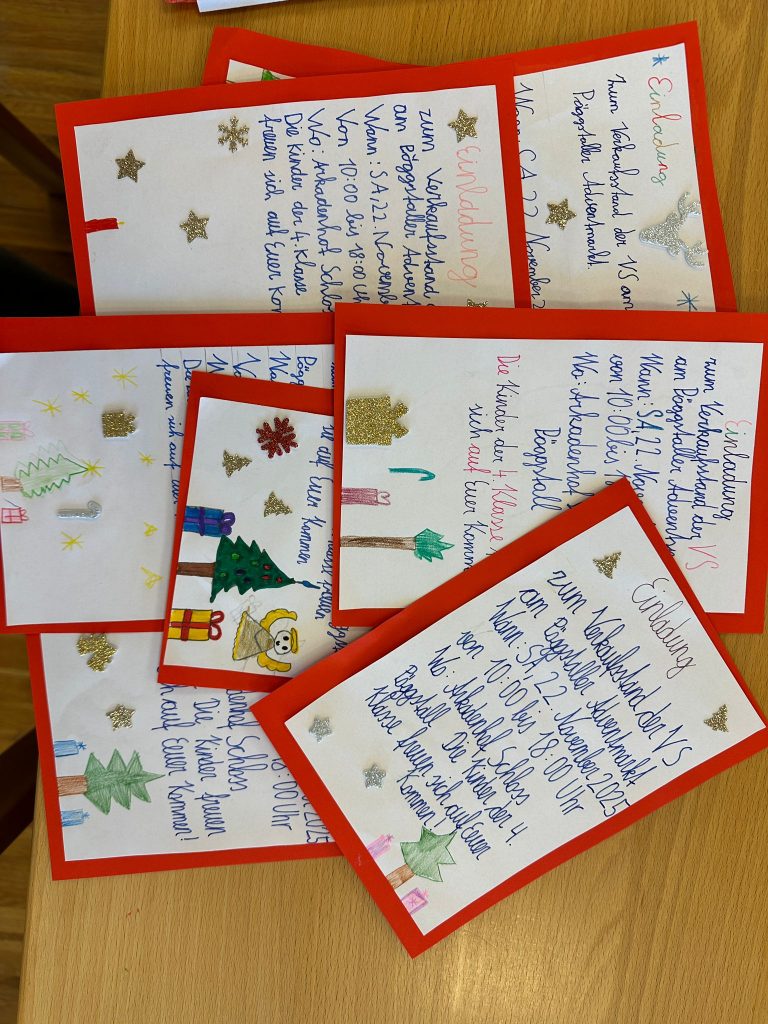 Einladung
zum Verkaufsstand der VS am
Pöggstaller Adventmarkt.
Wann: SA, 22. November 2
Einladung
zum Verkaufsstand
am Pöggstaller Advent
Wann: SA, 22. Novembe
Von 10:00 bis 18:00 Uh
Wo: Arkadenhof Schlos
Die Kinder der 4. Klasse
freuen sich auf Euer Kom
Einladung
zum Verkaufsstand der VS
am Pöggstaller Adventm
Wann: SA, 22. Nove
von 10:00 bis
Wo: Arkadenhof
Pöggstall
Die Kinder der 4. Klasse
sich auf Euer Komm
Pögg
Wa
Wo
Die
freuen sich auf
freuen
auf Euer Kommen
Einladung
zum Verkaufsstand der VS
am Pöggstaller Adventmarkt
Wann: SA, 22. November 2025
von 10:00 bis 18:00 Uhr
Wo: Arkadenhof Schloss
Pöggstall Die Kinder der 4.
Klasse freuen sich auf Euer
Kommen!
2025
18:00 Uhr
Schloss
Die Kinder freuen
sich auf Euer Kommen!